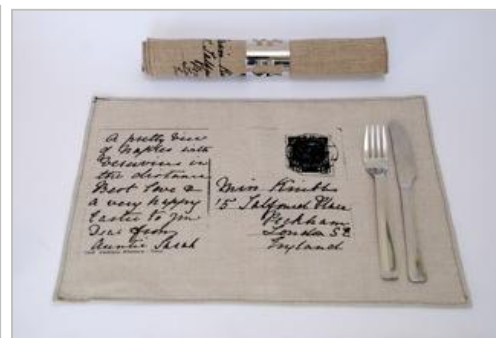 A pretty view
of Naples with
Vesuvius in
the distance
Best love &
a very happy
Easter to you
Dear from
Auntie Sarah
Miss Knibbs
15 Salford Place
Peckham
London S.E.
England